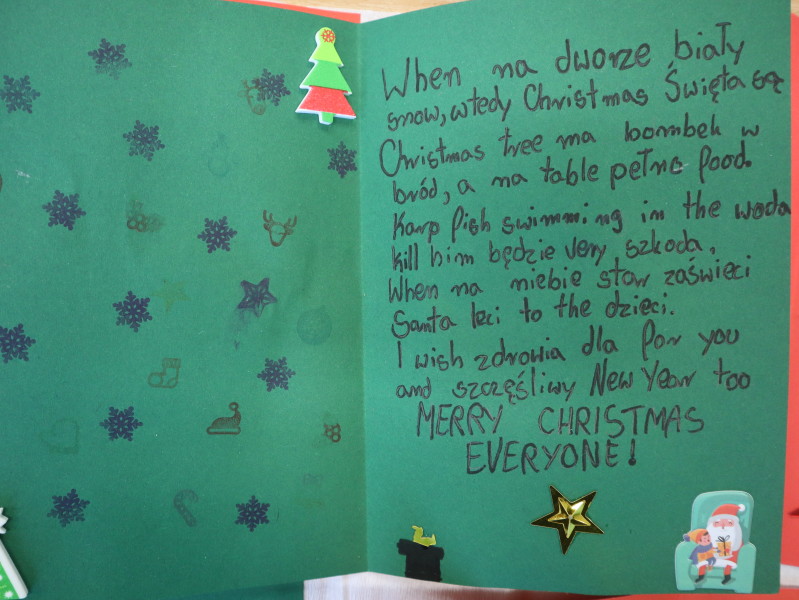 When na dworze biały
snow, wtedy Christmas Święta są
Christmas tree ma bombek w
bród, a na table pełno food.
Karp fish swimming in the woda
kill him będzie very szkoda.
When na niebie star zaświeci
Santa leci to the dzieci.
I wish zdrowia dla for you
and szczęśliwy New Year too
MERRY CHRISTMAS
EVERYONE!